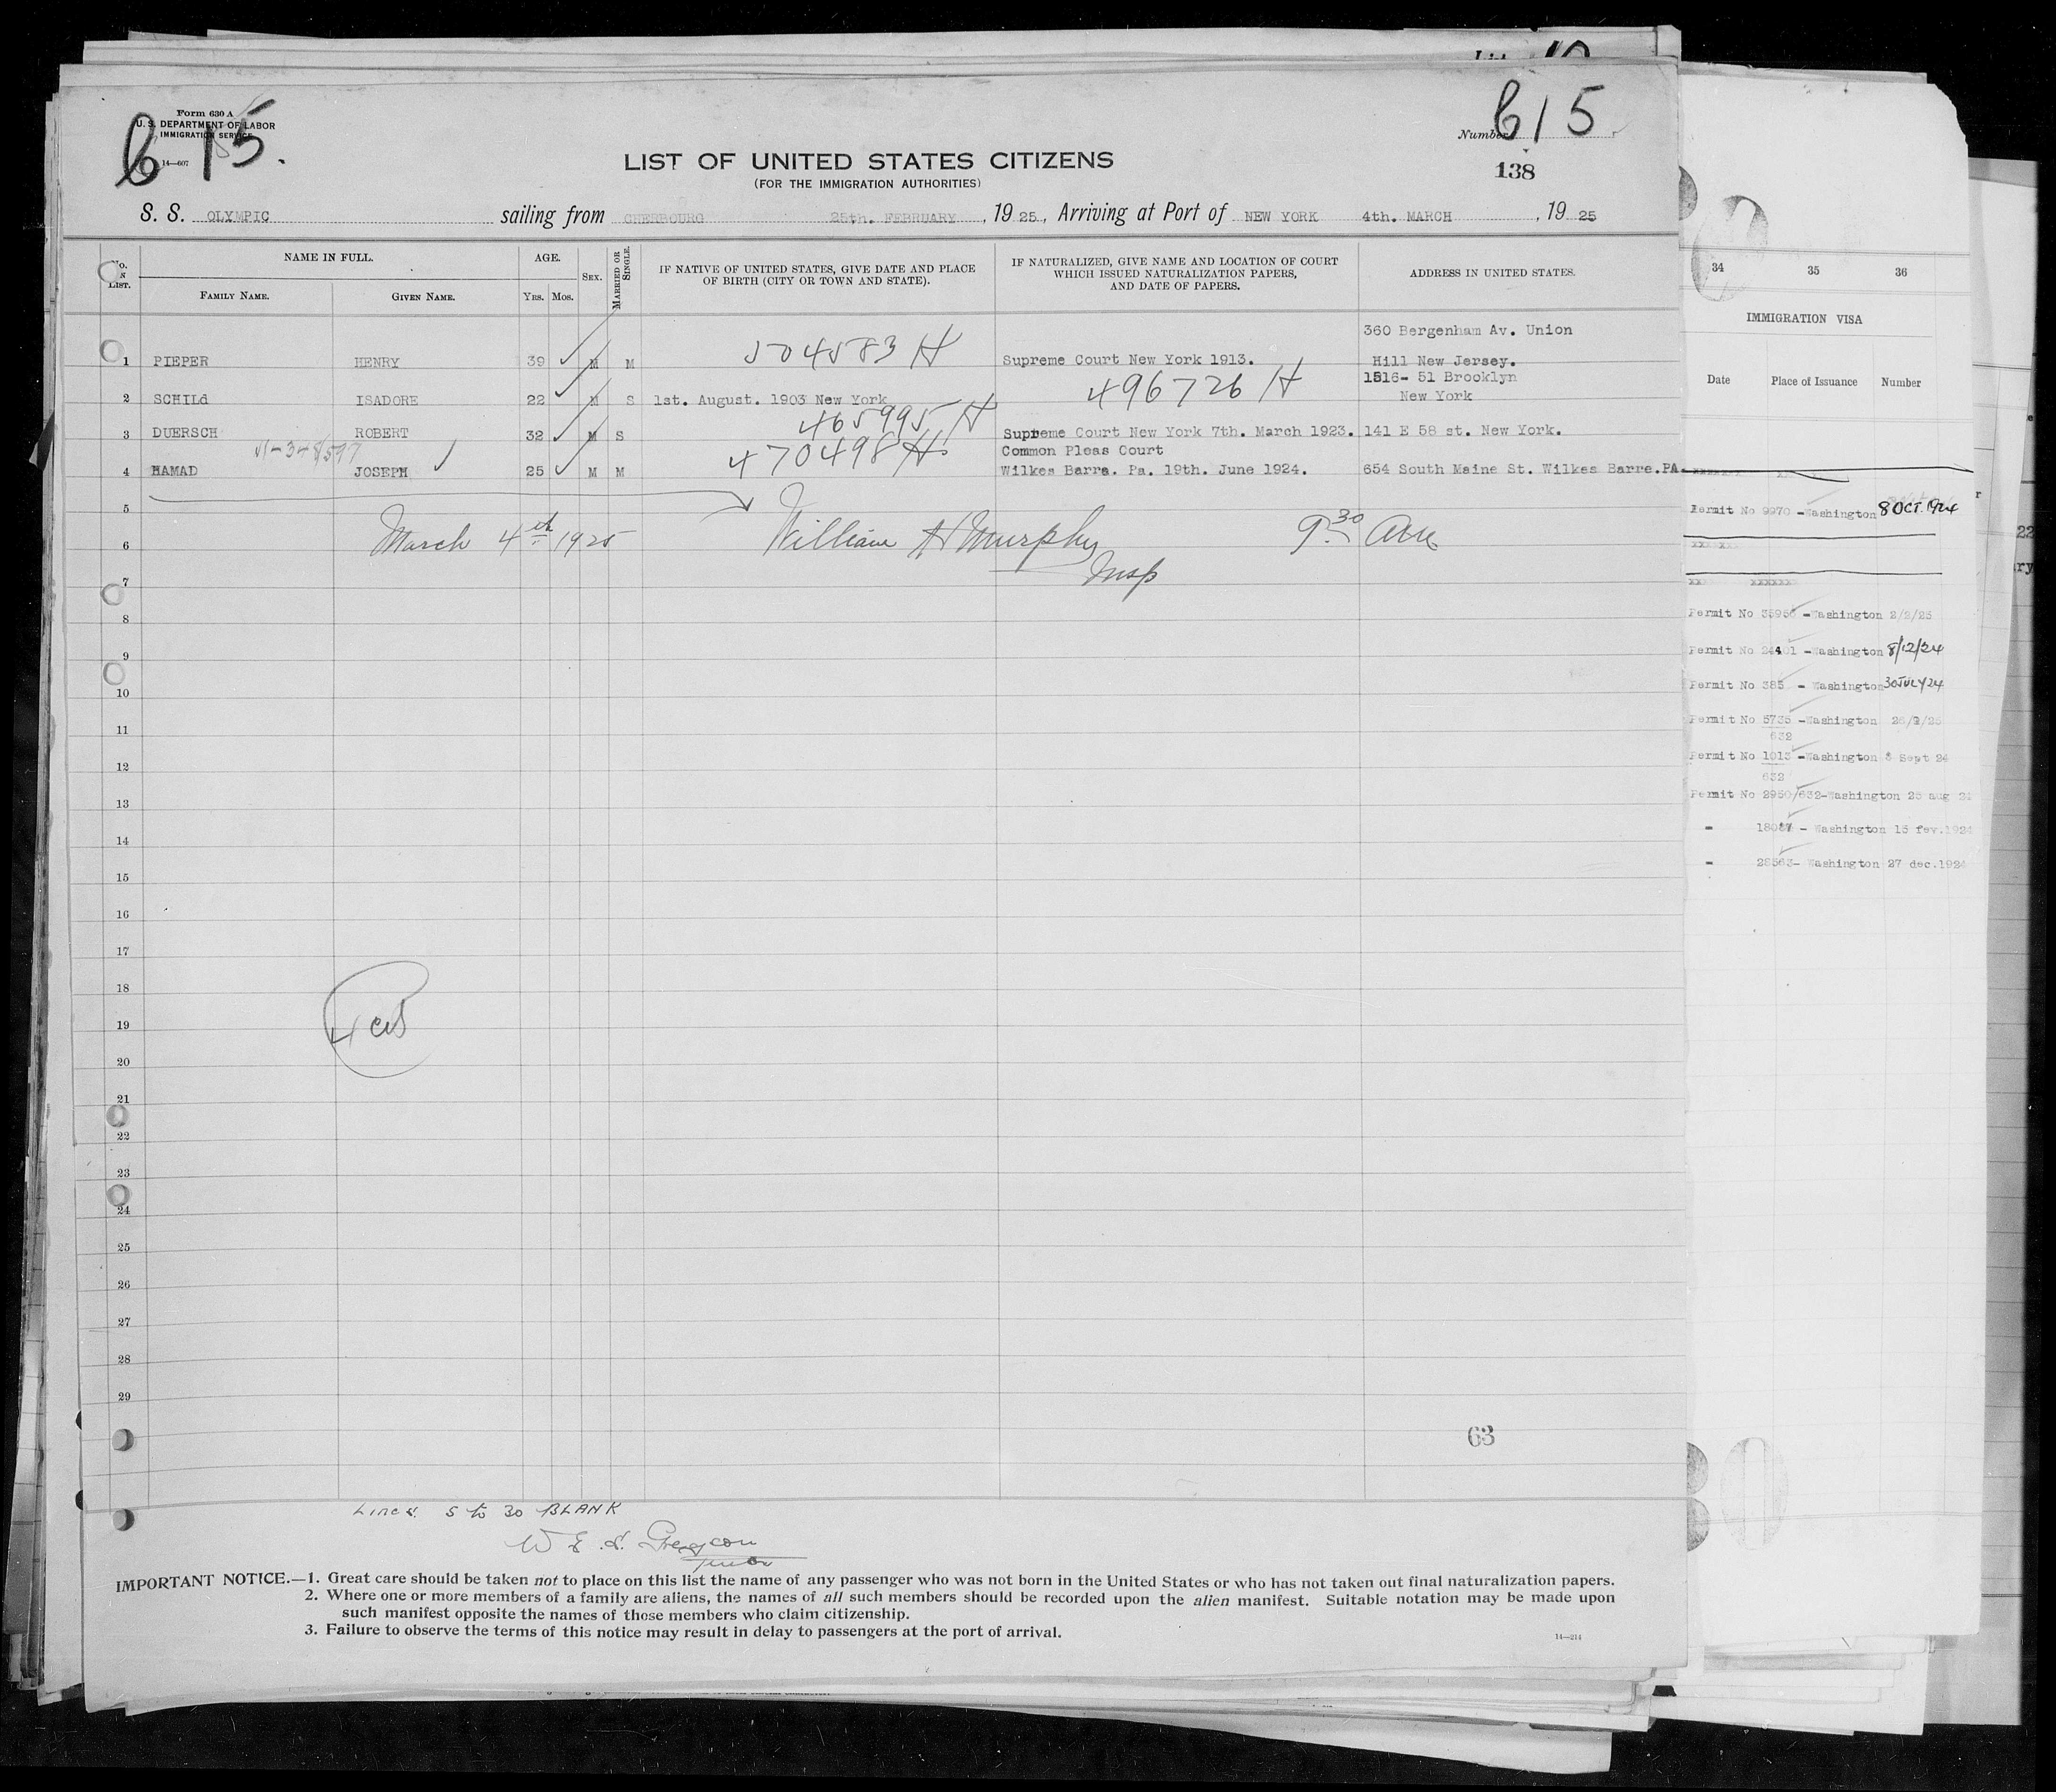 Form 630 A
U. S. DEPARTMENT OF LABOR
IMMIGRATION SERVICE
14—607
615.
Number 615
138
LIST OF UNITED STATES CITIZENS
(FOR THE IMMIGRATION AUTHORITIES)
S. S. OLYMPIC sailing from CHERBOURG 25th. FEBRUARY, 1925, Arriving at Port of NEW YORK 4th. MARCH, 1925
No. in List. NAME IN FULL. AGE. Sex. Married or Single. IF NATIVE OF UNITED STATES, GIVE DATE AND PLACE OF BIRTH (CITY OR TOWN AND STATE). IF NATURALIZED, GIVE NAME AND LOCATION OF COURT WHICH ISSUED NATURALIZATION PAPERS, AND DATE OF PAPERS. ADDRESS IN UNITED STATES.
Family Name. Given Name. Yrs. Mos.
360 Bergenham Av. Union
1 PIEPER HENRY 39 M M 504583 H Supreme Court New York 1913. Hill New Jersey.
496726 H 1516- 51 Brooklyn
2 SCHILd ISADORE 22 M S 1st. August. 1903 New York New York
465995 H
3 DUERSCH ROBERT 32 M S Supreme Court New York 7th. March 1923. 141 E 58 st. New York.
470498 H Common Pleas Court
4 HAMAD JOSEPH 25 M M Wilkes Barre. Pa. 19th. June 1924. 654 South Maine St. Wilkes Barre.PA.
5
6 March 4th 1925 William H Murphy 9.30 Am
Insp
7
8
9
10
11
12
13
14
15
16
17
18
19
20
21
22
23
24
25
26
27
28
29
63
Lines 5 to 30 BLANK
IMPORTANT NOTICE.—1. Great care should be taken not to place on this list the name of any passenger who was not born in the United States or who has not taken out final naturalization papers.
2. Where one or more members of a family are aliens, the names of all such members should be recorded upon the alien manifest. Suitable notation may be made upon
such manifest opposite the names of those members who claim citizenship.
3. Failure to observe the terms of this notice may result in delay to passengers at the port of arrival.
14—214
34 35 36
IMMIGRATION VISA
Date Place of Issuance Number
Permit No 9970 -Washington 8 OCT. 1924
Permit No 35950 -Washington 2/2/25
Permit No 24401 -Washington 8/12/24
Permit No 385 - Washington 30 JULY 24
Permit No 5735 -Washington 26/2/25
632
Permit No 1013 -Washington Sept 24
632
Permit No 2950/632-Washington 23 aug 24
- Washington 15 fev.1924
- 28563- Washington 27 dec.1924